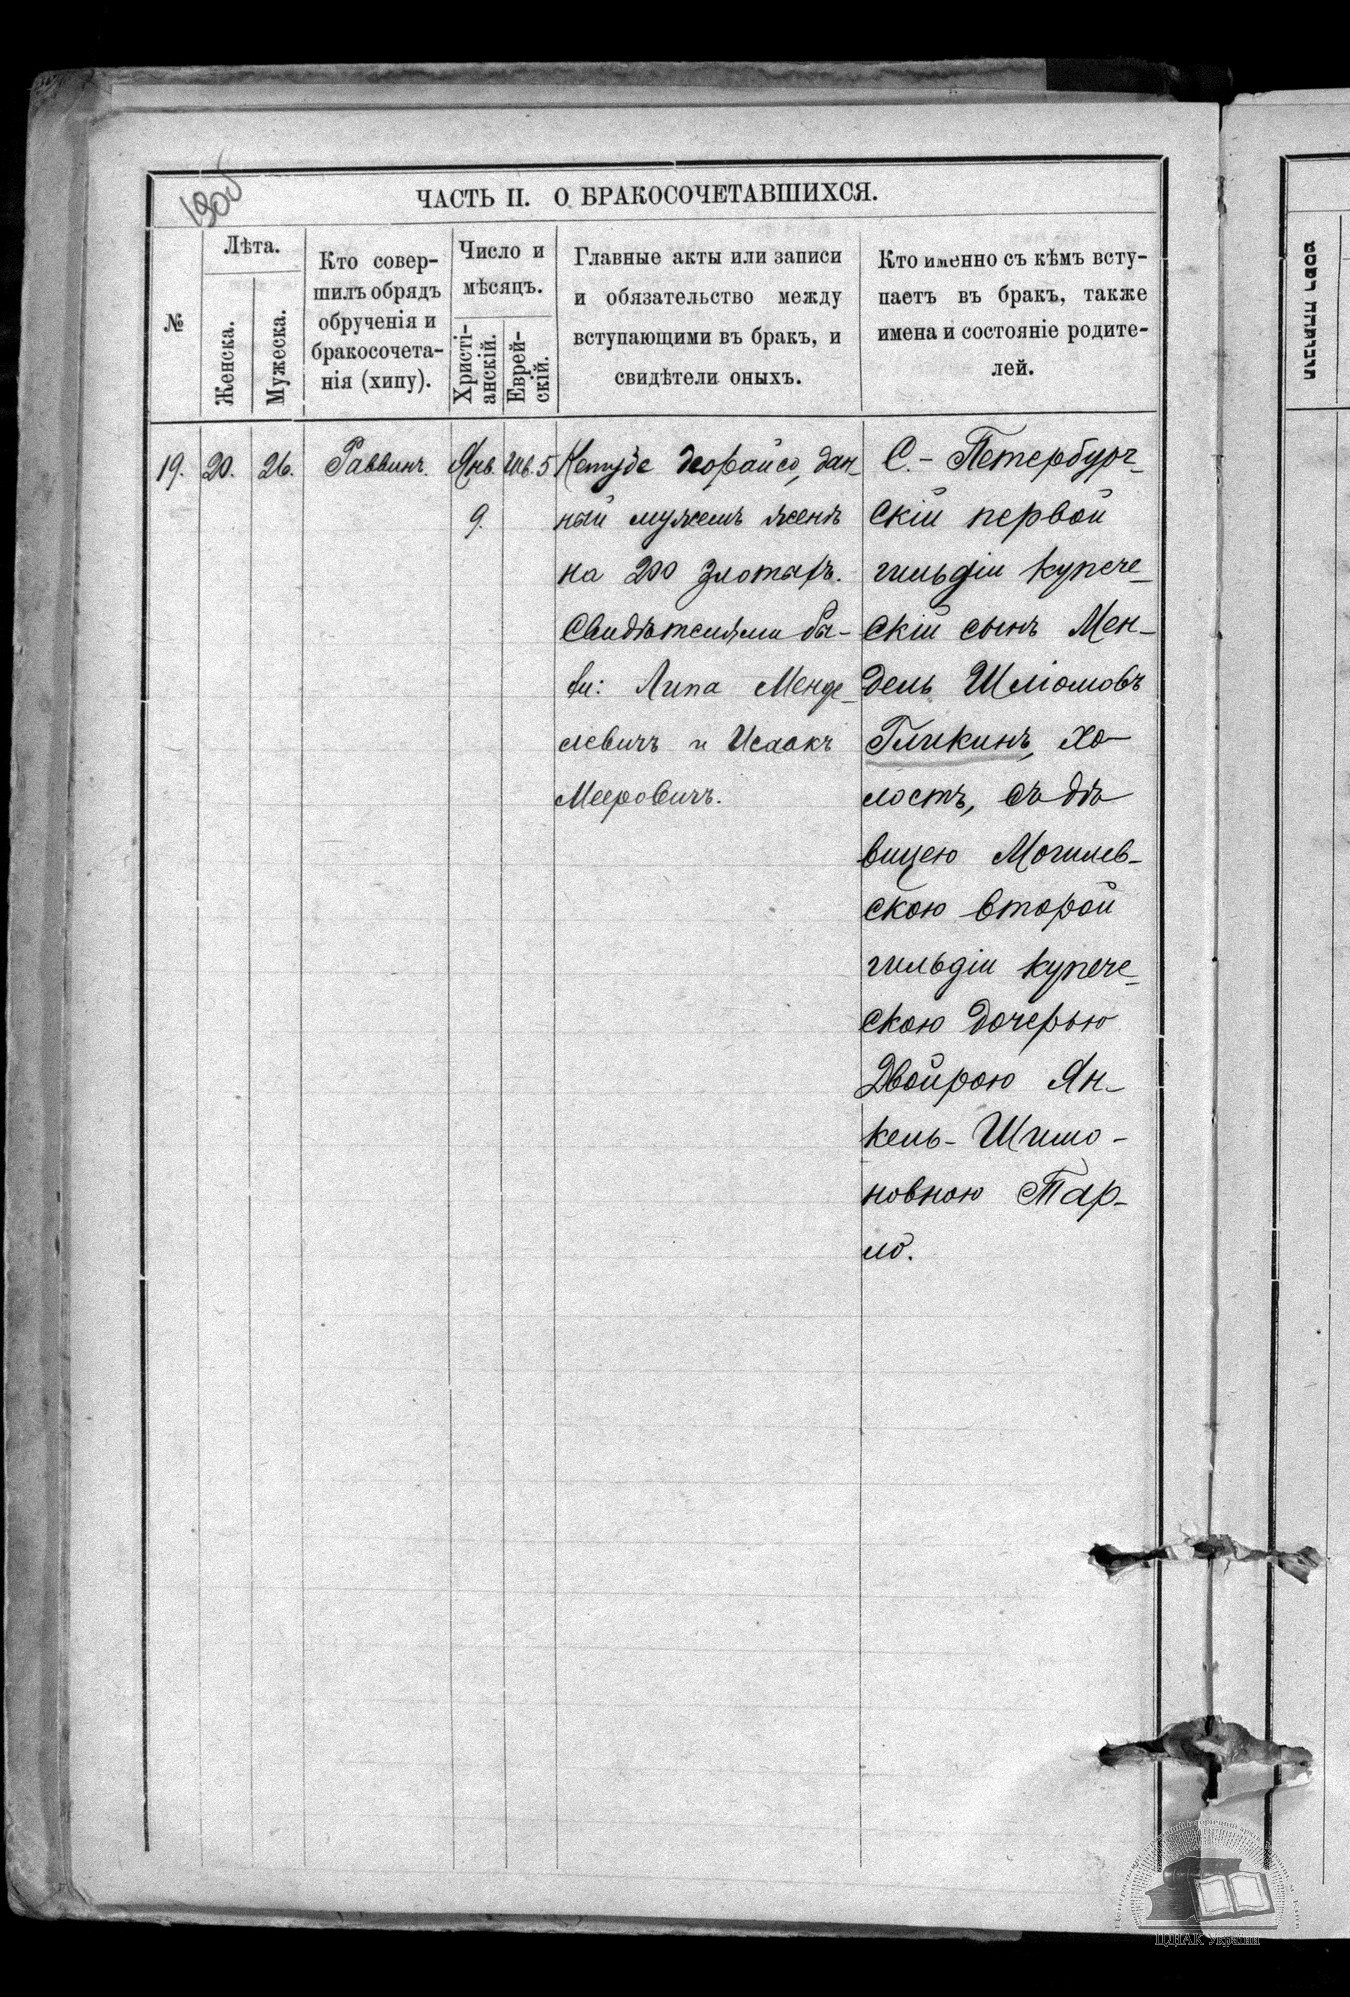 1905
ЧАСТЬ II. О БРАКОСОЧЕТАВШИХСЯ.
№
Лѣта.
Женска.
Мужеска.
Кто совер-
шилъ обрядъ
обрученія и
бракосочета-
нія (хипу).
Число и
мѣсяцъ.
Христі-
анскій.
Еврей-
скій.
Главные акты или записи
и обязательство между
вступающими въ бракъ, и
свидѣтели оныхъ.
Кто именно съ кѣмъ всту-
паетъ въ бракъ, также
имена и состояніе родите-
лей.
19.
20.
26.
Раввинъ.
Янв.
9.
Шв. 5
Кетубе деорайсо, дан-
ный мужемъ женѣ
на 200 злотыхъ.
Свидѣтелями бы-
ли: Липа Менде-
левичъ и Исаакъ
Мееровичъ.
С.-Петербург-
скій первой
гильдіи купече-
скій сынъ Мен-
дель Шліомовъ
Гликинъ, хо-
лостъ, съ дѣ-
вицею Могилев-
скою второй
гильдіи купече-
скою дочерью
Двойрою Ян-
кель-Шимо-
новною Тар-
ло.
ЦДІАК України